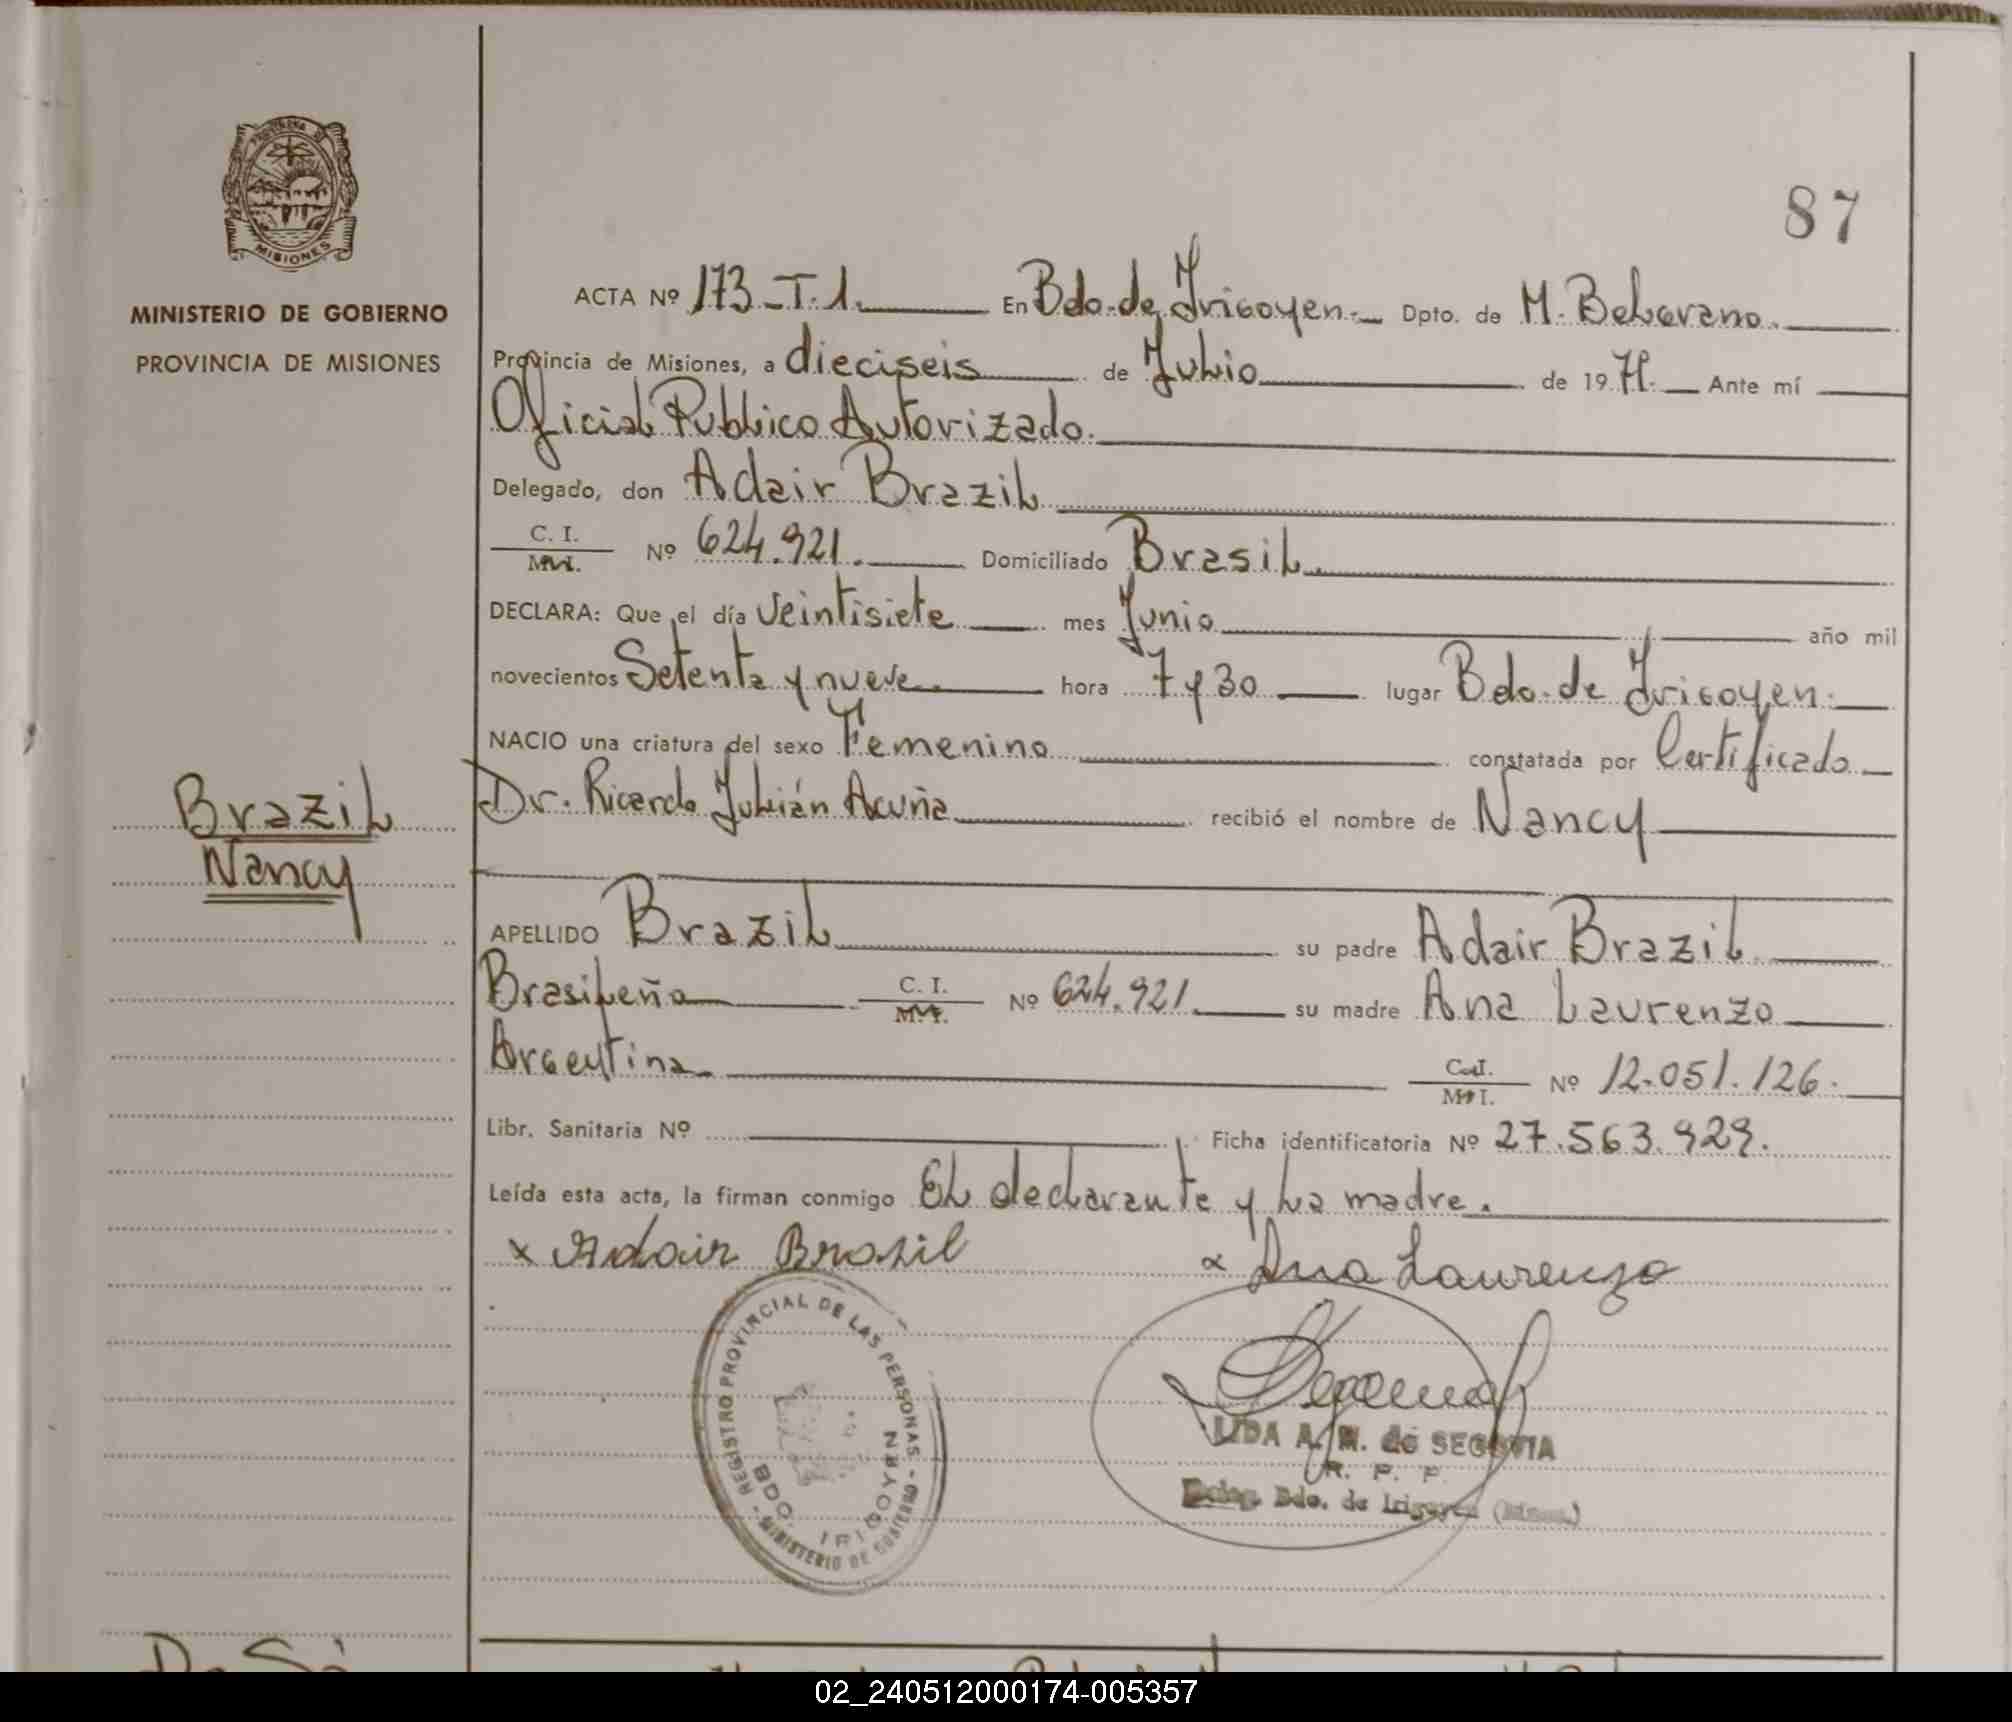 87
PROVINCIA DE
MISIONES
MINISTERIO DE GOBIERNO
PROVINCIA DE MISIONES
ACTA Nº 173-T.1. En Bdo. de Irigoyen. Dpto. de M. Belgrano.
Provincia de Misiones, a dieciseis de Julio de 1979. Ante mí
Oficial Publico Autorizado.
Delegado, don Adair Brazil
C. I. / M. I. Nº 624.921. Domiciliado Brasil.
DECLARA: Que el día veintisiete mes Junio año mil
novecientos Setenta y nueve. hora 7 y 30 lugar Bdo. de Irigoyen.
NACIO una criatura del sexo Femenino constatada por Certificado
Dr. Ricardo Julián Acuña recibió el nombre de Nancy
Brazil
Nancy
APELLIDO Brazil su padre Adair Brazil
Brasileña C. I. / M. I. Nº 624.921. su madre Ana Laurenzo
Argentina. C. I. / M. I. Nº 12.051.126.
Libr. Sanitaria Nº Ficha identificatoria Nº 27.563.929.
Leída esta acta, la firman conmigo El declarante y la madre.
x Adair Brazil x Ana Laurenzo
REGISTRO PROVINCIAL DE LAS PERSONAS - MINISTERIO DE GOBIERNO -
BDO. IRIGOYEN
LIDA A. M. de SEGOVIA
R. P. P.
Deleg. Bdo. de Irigoyen (Misnes.)
02_240512000174-005357